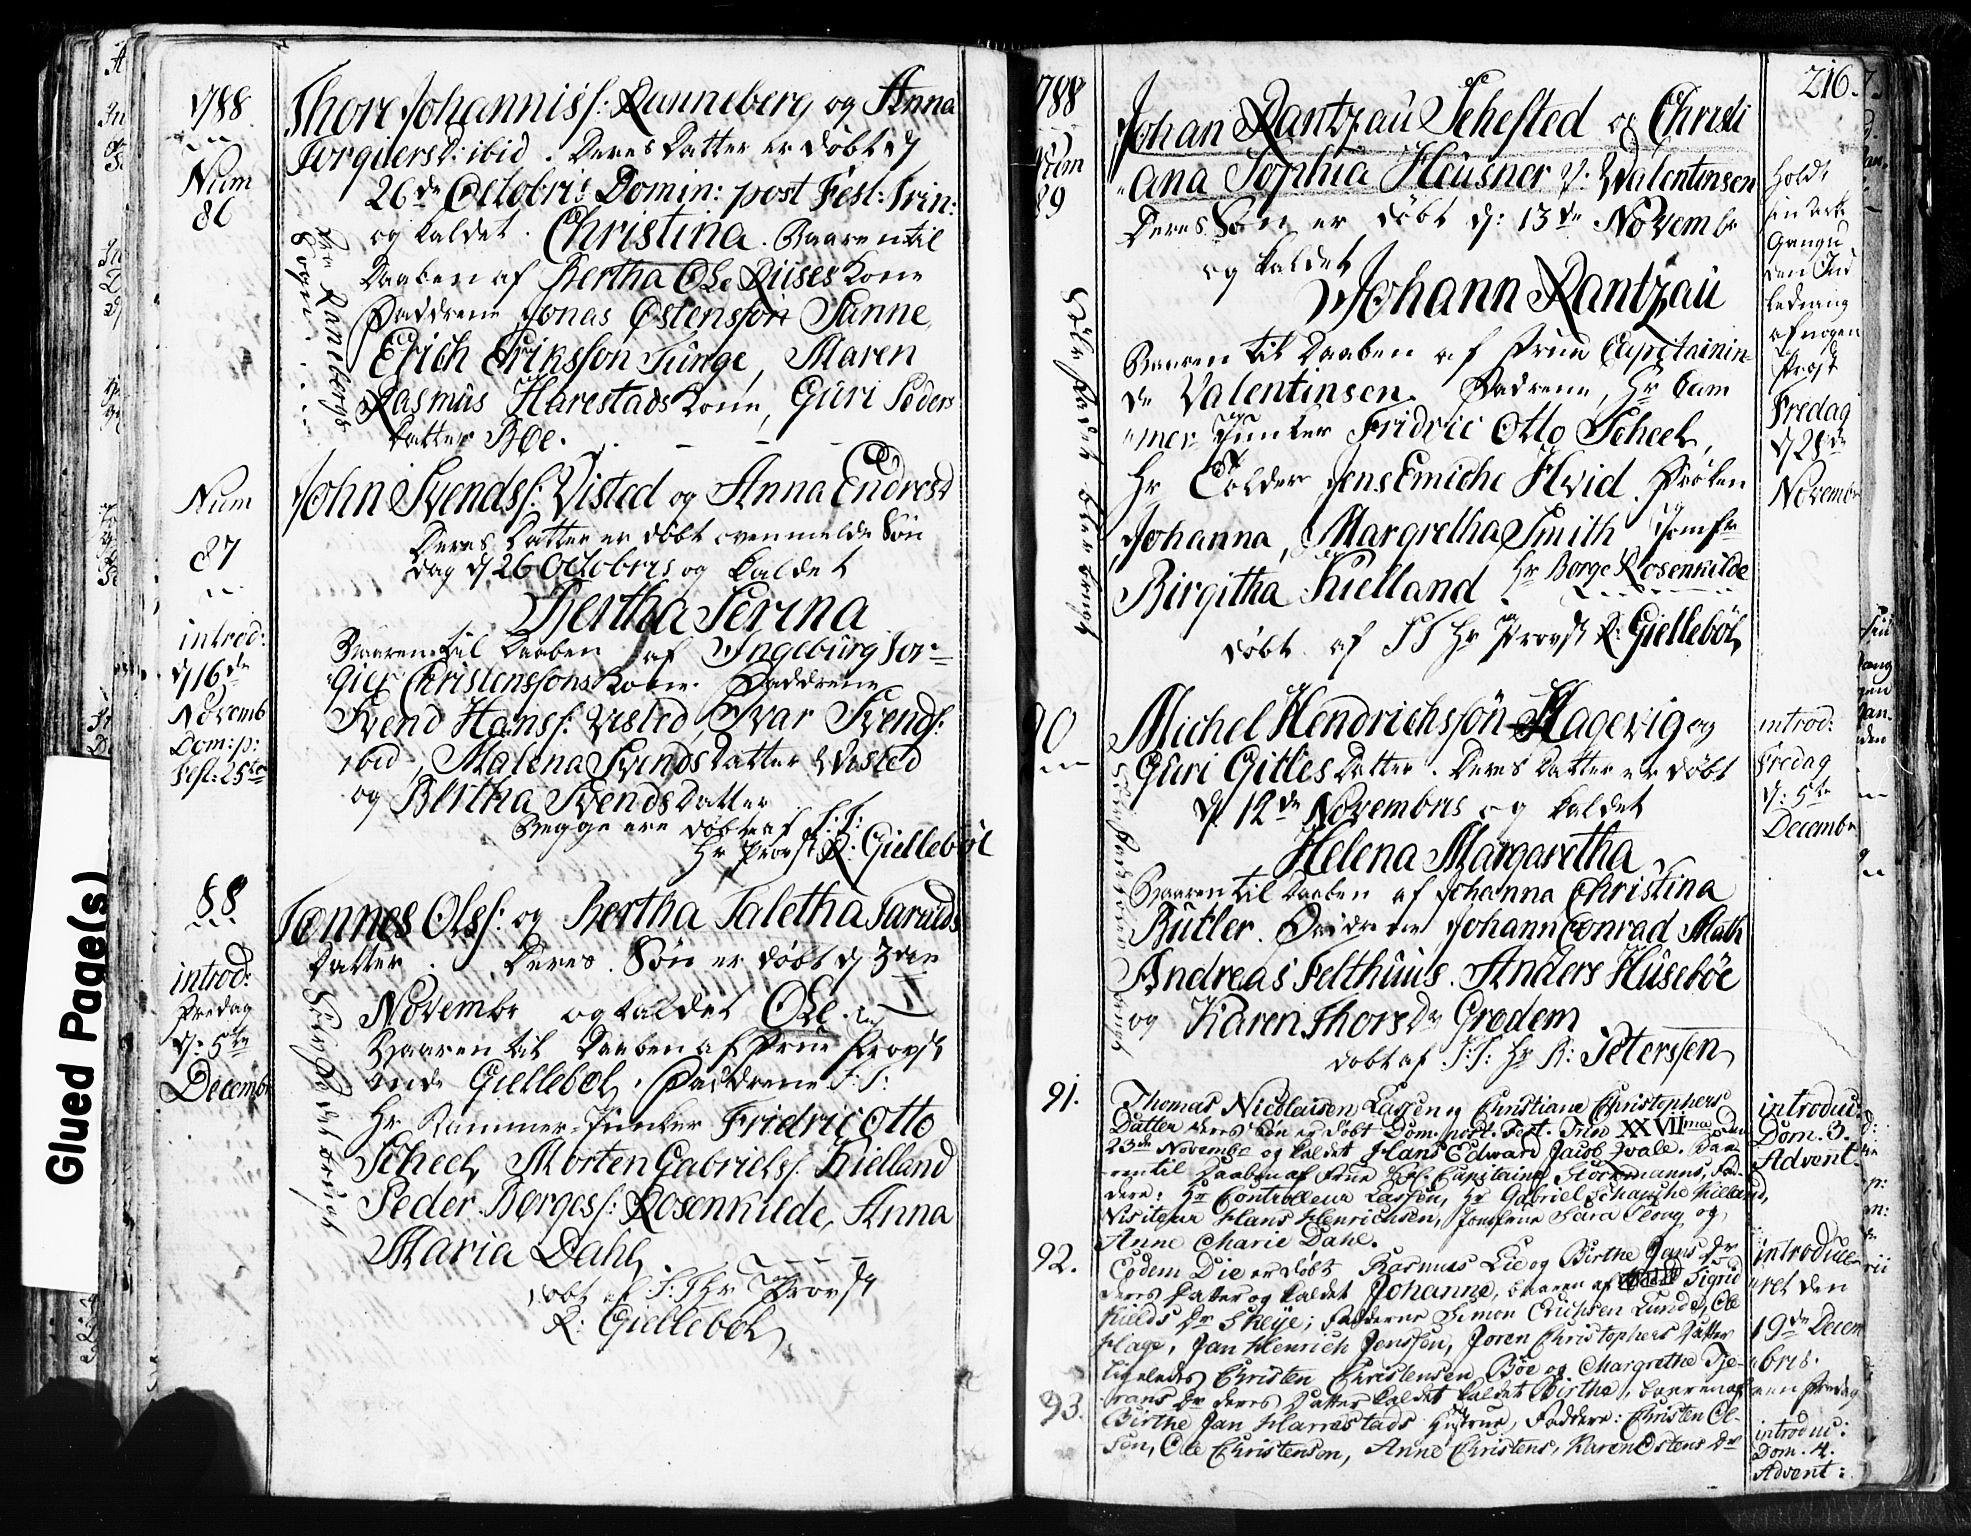 1788
Num
86
Thore Johanniss: Ranneberg og Anna
Torgiersd: ibid. Deres Datter er døbt d
26de Octobris Domin: post Fest: Trin:
og kaldet. Christina. Baaren til
Daaben af Bertha Ole Riises Kone
Faddrene Jonas Østenssøn Sunne,
Erich Erikssøn Tunge, Maren
Rasmus Harestads Kone, Guri Peders
Datter Bøe.
Num
87
introd:
d 16de
Novemb
Dom: p:
Fest: 25de
John Svends: Visted og Anna Endresd
Deres Datter er døbt ovenmelde Søn
dag d 26 Octobris og kaldet
Bertha Serina
Baaren til Daaben af Ingeburg Tor-
gier Christenssøns Kone. Faddrene
Svend Hanss: Visted, Ivar Svends:
ibid, Malena Svends Datter Visted
og Bertha Svends Datter
Begge ere døbte af S: T:
Hr Provst R: Giellebøl
88
introd:
Fredag
d: 5te
Decembr
Tønnes Olss: og Bertha Taletha
Datter. Deres Søn er døbt d 3die
Novembr og kaldet Ole.
Baaren til Daaben af Frue Provst
inde Giellebøl. Faddrene S: T:
Hr Kammer-Junker Fridric Otto
Scheel, Morten Gabriels: Kielland
Peder Børges: Rosenkilde, Anna
Maria Dahl.
døbt af S: T Hr Provst
R: Giellebøl
216.
1788
Num
89
Johan Rantzau Sehested og Christi
ana Sophia Heusner Valentinsen
Deres Søn er døbt d: 13de Novembr
og kaldet
Johann Rantzau
Baaren til Daaben af Frue Capitainin-
de Valentinsen. Fadrene, Hr Cam
mer Junker Fridric Otto Scheel,
Hr Tolder Jens Emiche Hvid. Frøken
Johanna Margretha Smith Jomfr
Birgitha Kielland Hr Børge Rosenkilde
døbt af S T Hr Provst R: Giellebøl
Holdt
sin Kirke
Gangu
den Ind
ledning
af nogen
Præst
Fredag
d 28de
Novembr
90
Michel Hendrichssøn Hagevig og
Guri Gitles Datter. Deres Datter er døbt
d 12de Novembris og kaldet
Helena Margaretha
Baaren til Daaben af Johanna Christina
Butler. Fadrene Johann Conrad Math
Andreas Felthuus. Anders Husebøe
og Karen Thors Dr Grødem
døbt af S: T: Hr R: Peterssen
introd:
Fredag
d: 5te
Decembr
91.
Thomas Nicolaisen Lassen og Christiane Christophers
Datter deres Søn er døbt Dom. post. Fest. Trin XXVIIma den
23de Novembr og kaldet Hans Edward Jacob Hvale. Baa
ren til Daaben af Frue Capitaine Stockmanns, Fad-
dere: Hr Controlleur Lassen, Hr Gabriel Schanche Kielland,
Visiteur Hans Henrichsen, Jomfrue Sara og
Anne Marie Dahl.
introduc:
Dom. 3.
Advent:
92.
Eodem Die er døbt Rasmus Lie og Birthe Jans Dr
deres Datter og kaldet Johanne, baaren af Sigrid
Kields Dr Skeye; Fadderne Simon Erichsen Lunde, Ole
Hage, Jan Henrich Jenssen, Joren Christophers Datter
introduce
ret den
19de Decem
bris.
93.
Ligeledes Christen Christensen Bøe og Margrethe Tje-
rans Dr deres Datter kaldet kaldet Birthe, baaren af
Birthe Jan Harrestads Hustrue, Faddere: Christen Ol-
sen, Ole Christensen, Anne Christens, Karen Ostens Dr
introduc:
Dom. 4.
Advent:
Glued Page(s)